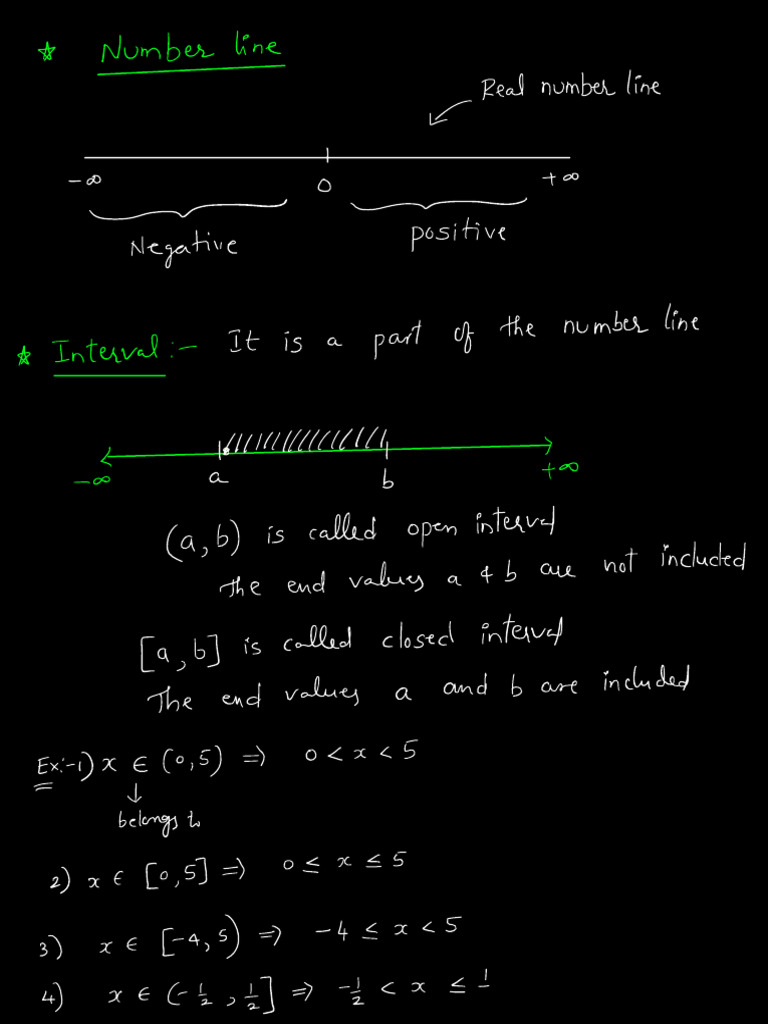 ☆ Number line
Real number line
-∞ 0 +∞
Negative positive
☆ Interval :- It is a part of the number line
-∞ a b +∞
(a,b) is called open interval
The end values a & b are not included
[a,b] is called closed interval
The end values a and b are included
Ex:-1) x ∈ (0,5) ⇒ 0 < x < 5
↓
belongs to
2) x ∈ [0,5] ⇒ 0 ≤ x ≤ 5
3) x ∈ [-4,5) ⇒ -4 ≤ x < 5
4) x ∈ (-1/2, 1/2] ⇒ -1/2 < x ≤ 1